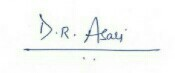 D.R. Asari